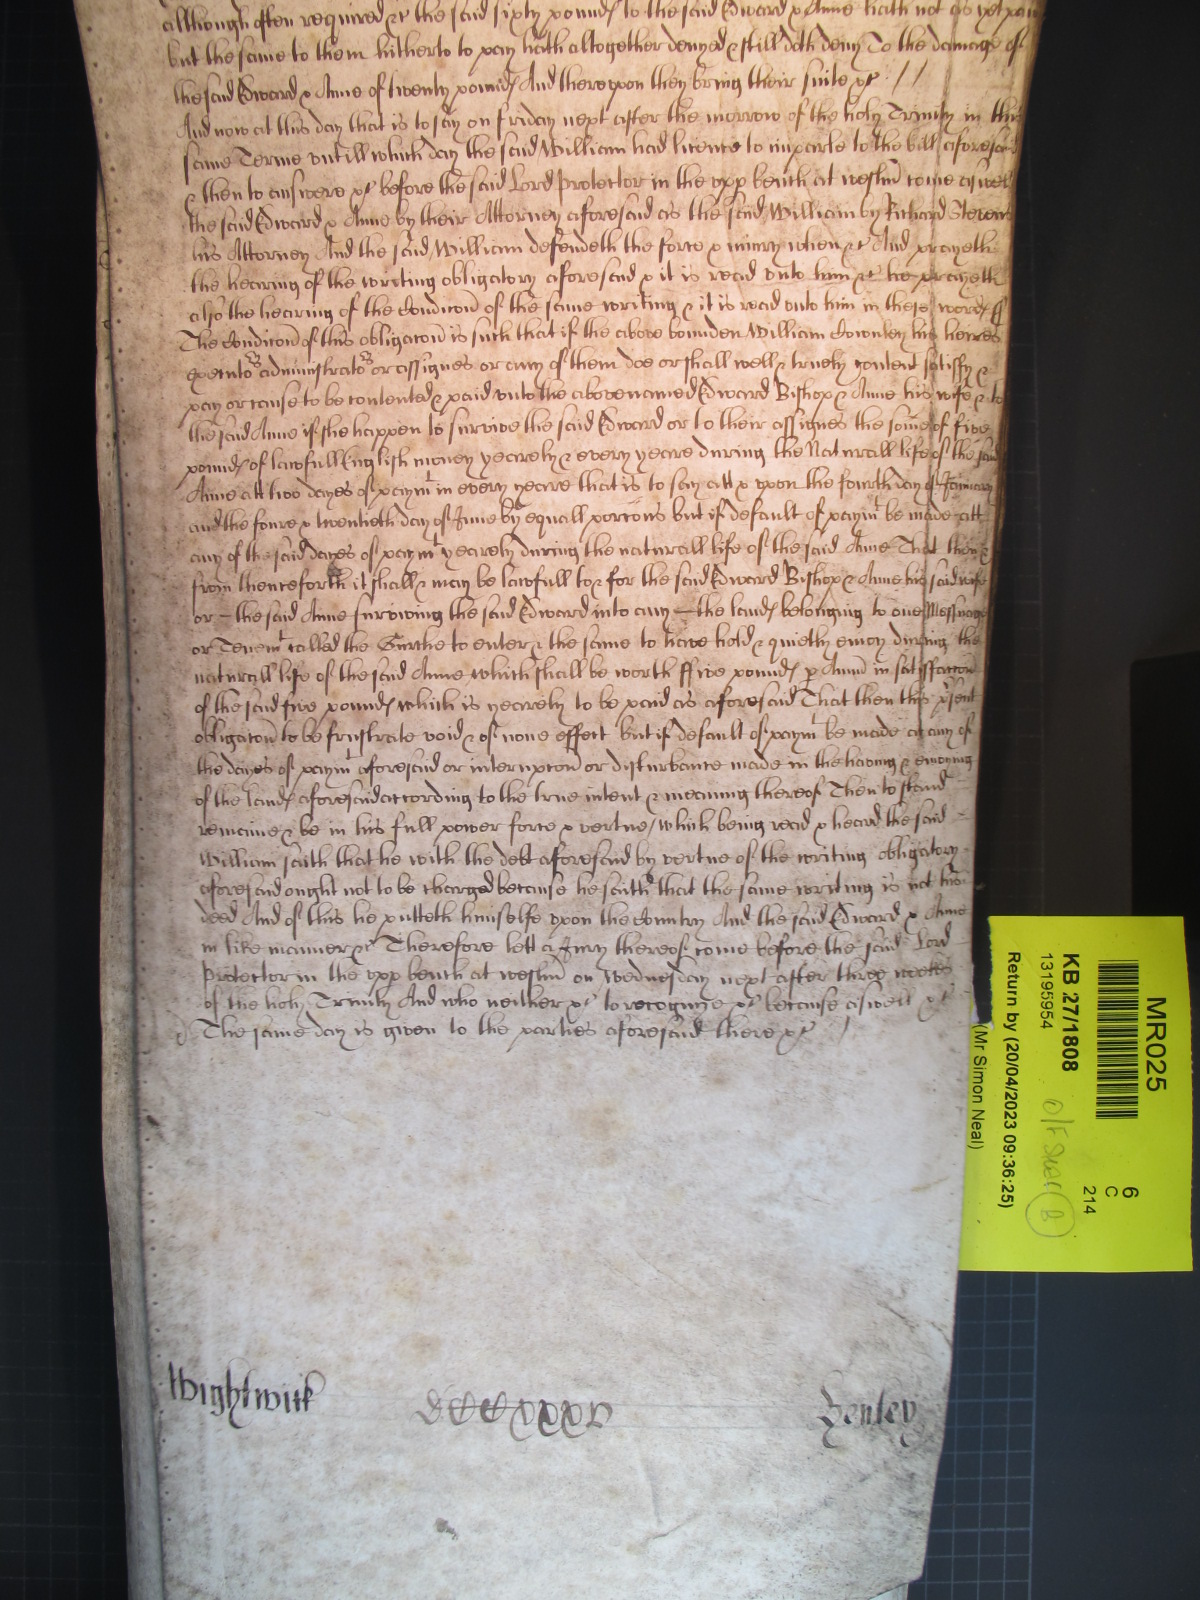 although often required &c the said sixty pounds to the said Edward & Anne hath not as yet paid
but the same to them hitherto to pay hath altogether denyed & still doth deny To the damage of
the said Edward & Anne of twenty pounds And thereupon they bring their suite &c //
And now at this day that is to say on friday next after the morrow of the holy Trinity in this
same Terme untill which day the said William had licence to imparle to the bill aforesaid
& then to answere &c before the said Lord Protector in the upp bench at westm come aswell
the said Edward & Anne by their Attorney aforesaid as the said William by Richard Stevens
his Attorney And the said William defendeth the force & iniury when &c And prayeth
the hearing of the writing obligatory aforesaid & it is read unto him &c he prayeth
also the hearing of the Condicon of the same writing & it is read unto him in these words ss
The Condicon of this obligacon is such that if the above bounden William his heires
executors administrators or assignes or any of them doe or shall well & truely content satisfy &
pay or cause to be contented & paid unto the abovenamed Edward Bishop & Anne his wife & to
the said Anne if she happen to survive the said Edward or to their assignes the some of five
pounds of lawfull English money yearely & every yeare during the Naturall life of the said
Anne att two dayes of paymt in every yeare that is to say att & upon the fourth day of January
and the foure & twentieth day of June by equall porcons but if default of paymt be made att
any of the said dayes of paymt yearely during the naturall life of the said Anne That then &
from thenceforth it shall & may be lawfull to & for the said Edward Bishop & Anne his said wife
or the said Anne surviving the said Edward into any the lands belonging to one Messuage
or Tenemt called the to enter & the same to have hold & quietly enioy during the
naturall life of the said Anne which shall be worth ffive pounds p Annu in satisfaccon
of the said five pounds which is yearely to be paid as aforesaid That then this psent
obligacon to be frustrate void & of none effect but if default of paymt be made at any of
the dayes of paymt aforesaid or interupcon or disturbance made in the having & enioying
of the lands aforesaid according to the true intent & meaning thereof Then to stand
remaine & be in his full power force & vertue / which being read & heard the said
William saith that he with the debt aforesaid by vertue of the writing obligatory
aforesaid ought not to be charged because he saith that the same writing is not his
deed And of this he putteth himselfe upon the Country And the said Edward & Anne
in like manner &c Therefore lett a Jury thereof come before the said Lord
Protector in the upp bench at westm on Wednesday next after three weekes
of the holy Trinity And who neither &c to recognize &c because aswell &c
The same day is given to the parties aforesaid there &c /
Wightwick DCCCxxxv Henley
MR025
KB 27/1808
13195954
Return by (20/04/2023 09:36:25)
(Mr Simon Neal)
6
C
214
B